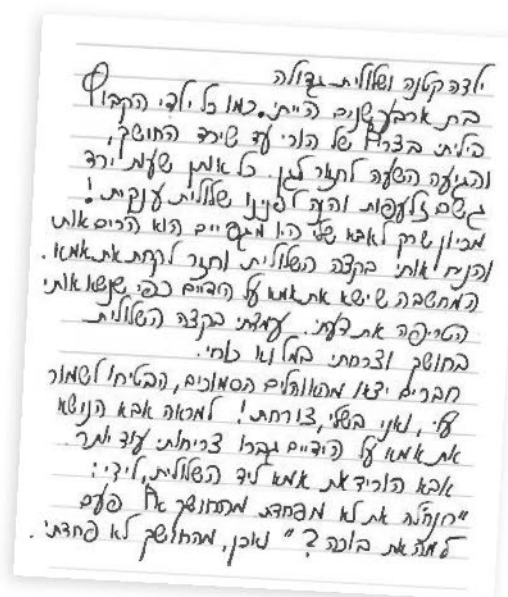 ילדה קטנה ושלולית גדולה
בת ארבע שנים הייתי. כמו כל ילדי הקבוץ
ביליתי בצריף של הורי עד שירד החושך,
והגיעה השעה לחזור לגן. כל אותן שעות ירד
גשם זלעפות והנה לפנינו שלולית ענקית!
מכיון שרק לאבא שלי היו מגפיים הוא הרים אותי
והניח אותי בקצה השלולית וחזר לקחת את אמא.
המחשבה שישא את אמא על הידיים כפי שנשא אותי
הטריפה את דעתי. עמדתי בקצה השלולית
בחושך וצרחתי במלוא כוחי.
חברים יצאו מהאוהלים הסמוכים, הבטיחו לשמור
עלי, ואני בשלי, צורחת! למראה אבא הנושא
את אמא על הידיים גברו צריחותי עוד יותר.
אבא הוריד את אמא ליד השלולית, לידי:
"רוחל'ה את לא מפחדת מהחושך אף פעם
למה את בוכה?" ואכן, מהחושך לא פחדתי.